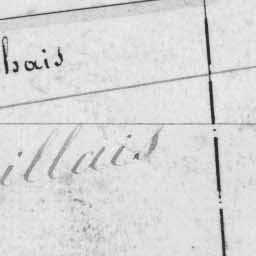 hais
illais